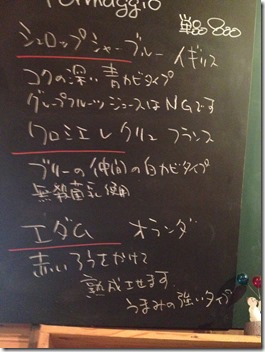 Formaggio
単品 800
シュロップシャーブルー イギリス
コクの深い青カビタイプ
グレープフルーツジュースはNGです
クロミエ レ クリュ フランス
ブリーの仲間の白カビタイプ
無殺菌乳使用
エダム オランダ
赤いろうをかけて
熟成させます
うまみの強いタイプ